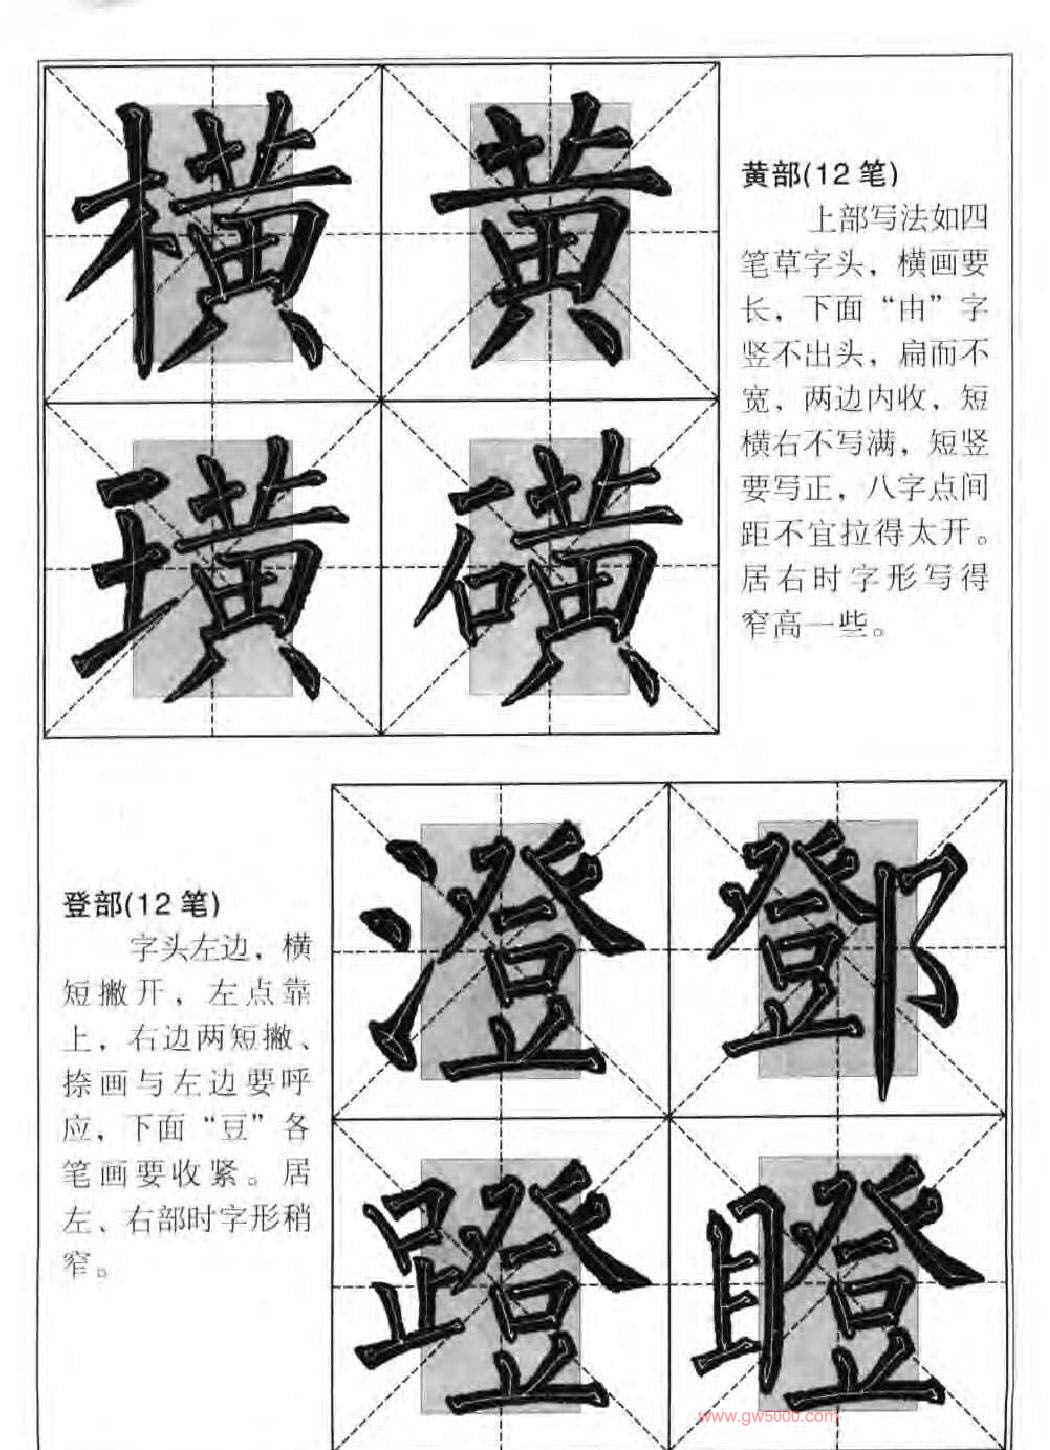 横 黄
璜 磺
黄部(12 笔)
上部写法如四
笔草字头，横画要
长，下面“由”字
竖不出头，扁而不
宽，两边内收，短
横右不写满，短竖
要写正，八字点间
距不宜拉得太开。
居右时字形写得
窄高一些。
登部(12 笔)
字头左边，横
短撇开，左点靠
上，右边两短撇、
捺画与左边要呼
应，下面“豆”各
笔画要收紧。居
左、右部时字形稍
窄。
澄 鄧
蹬 瞪
www.gw5000.com